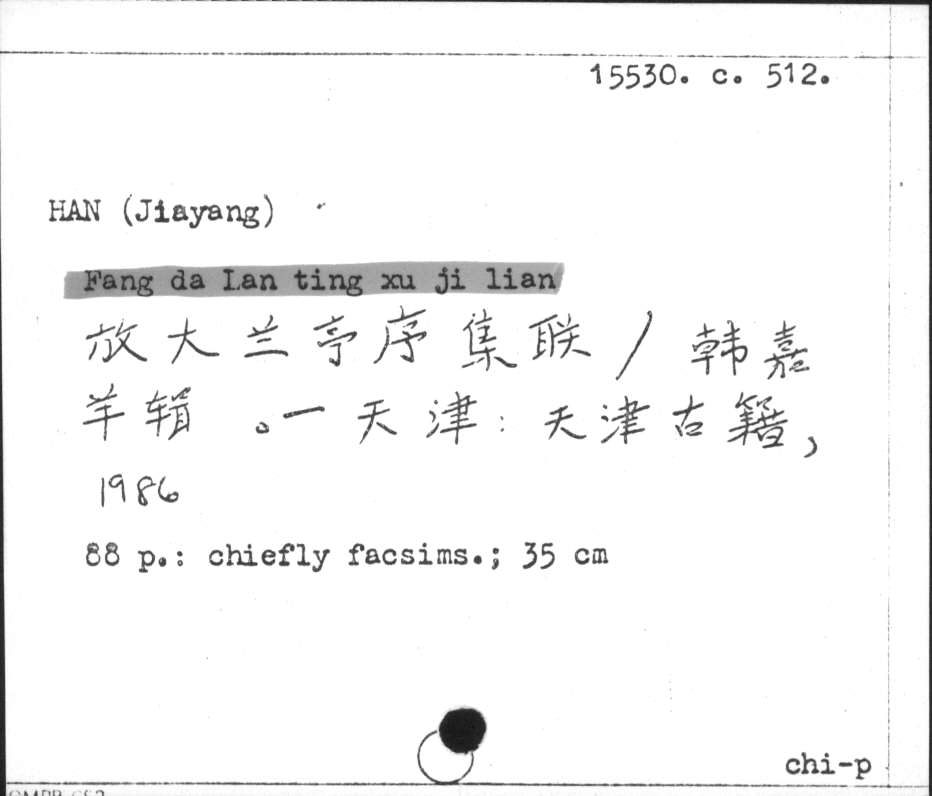 15530. c. 512.
HAN (Jiayang)
Fang da Lan ting xu ji lian
放大兰亭序集联 / 韩嘉
羊辑。— 天津: 天津古籍,
1986
88 p.: chiefly facsims.; 35 cm
chi-p